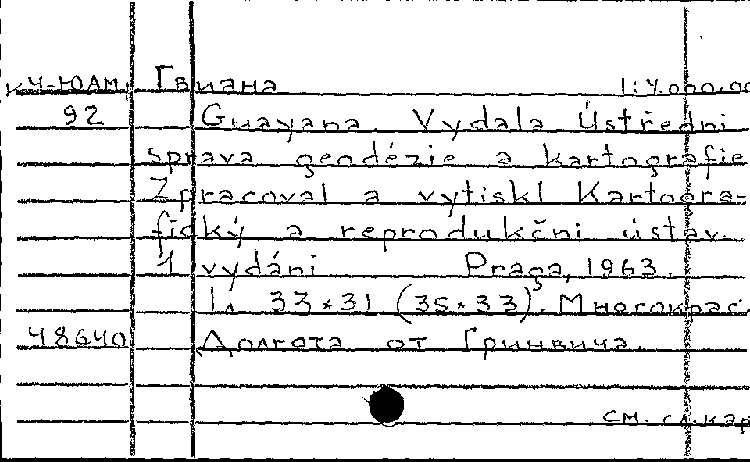 КЧ-ЮАМ. Гвиана 1:4.000.00
92 Guayana. Vydala Ústředni
správa geodézie a kartografie
Zpracoval a vytiskl Kartogra-
fický a reprodukčni ústav.
1 vydáni Praga, 1963.
1л 33×31 (35×33). Многокрас.
48640 Долгота от Гринвича.
см. сл. кар